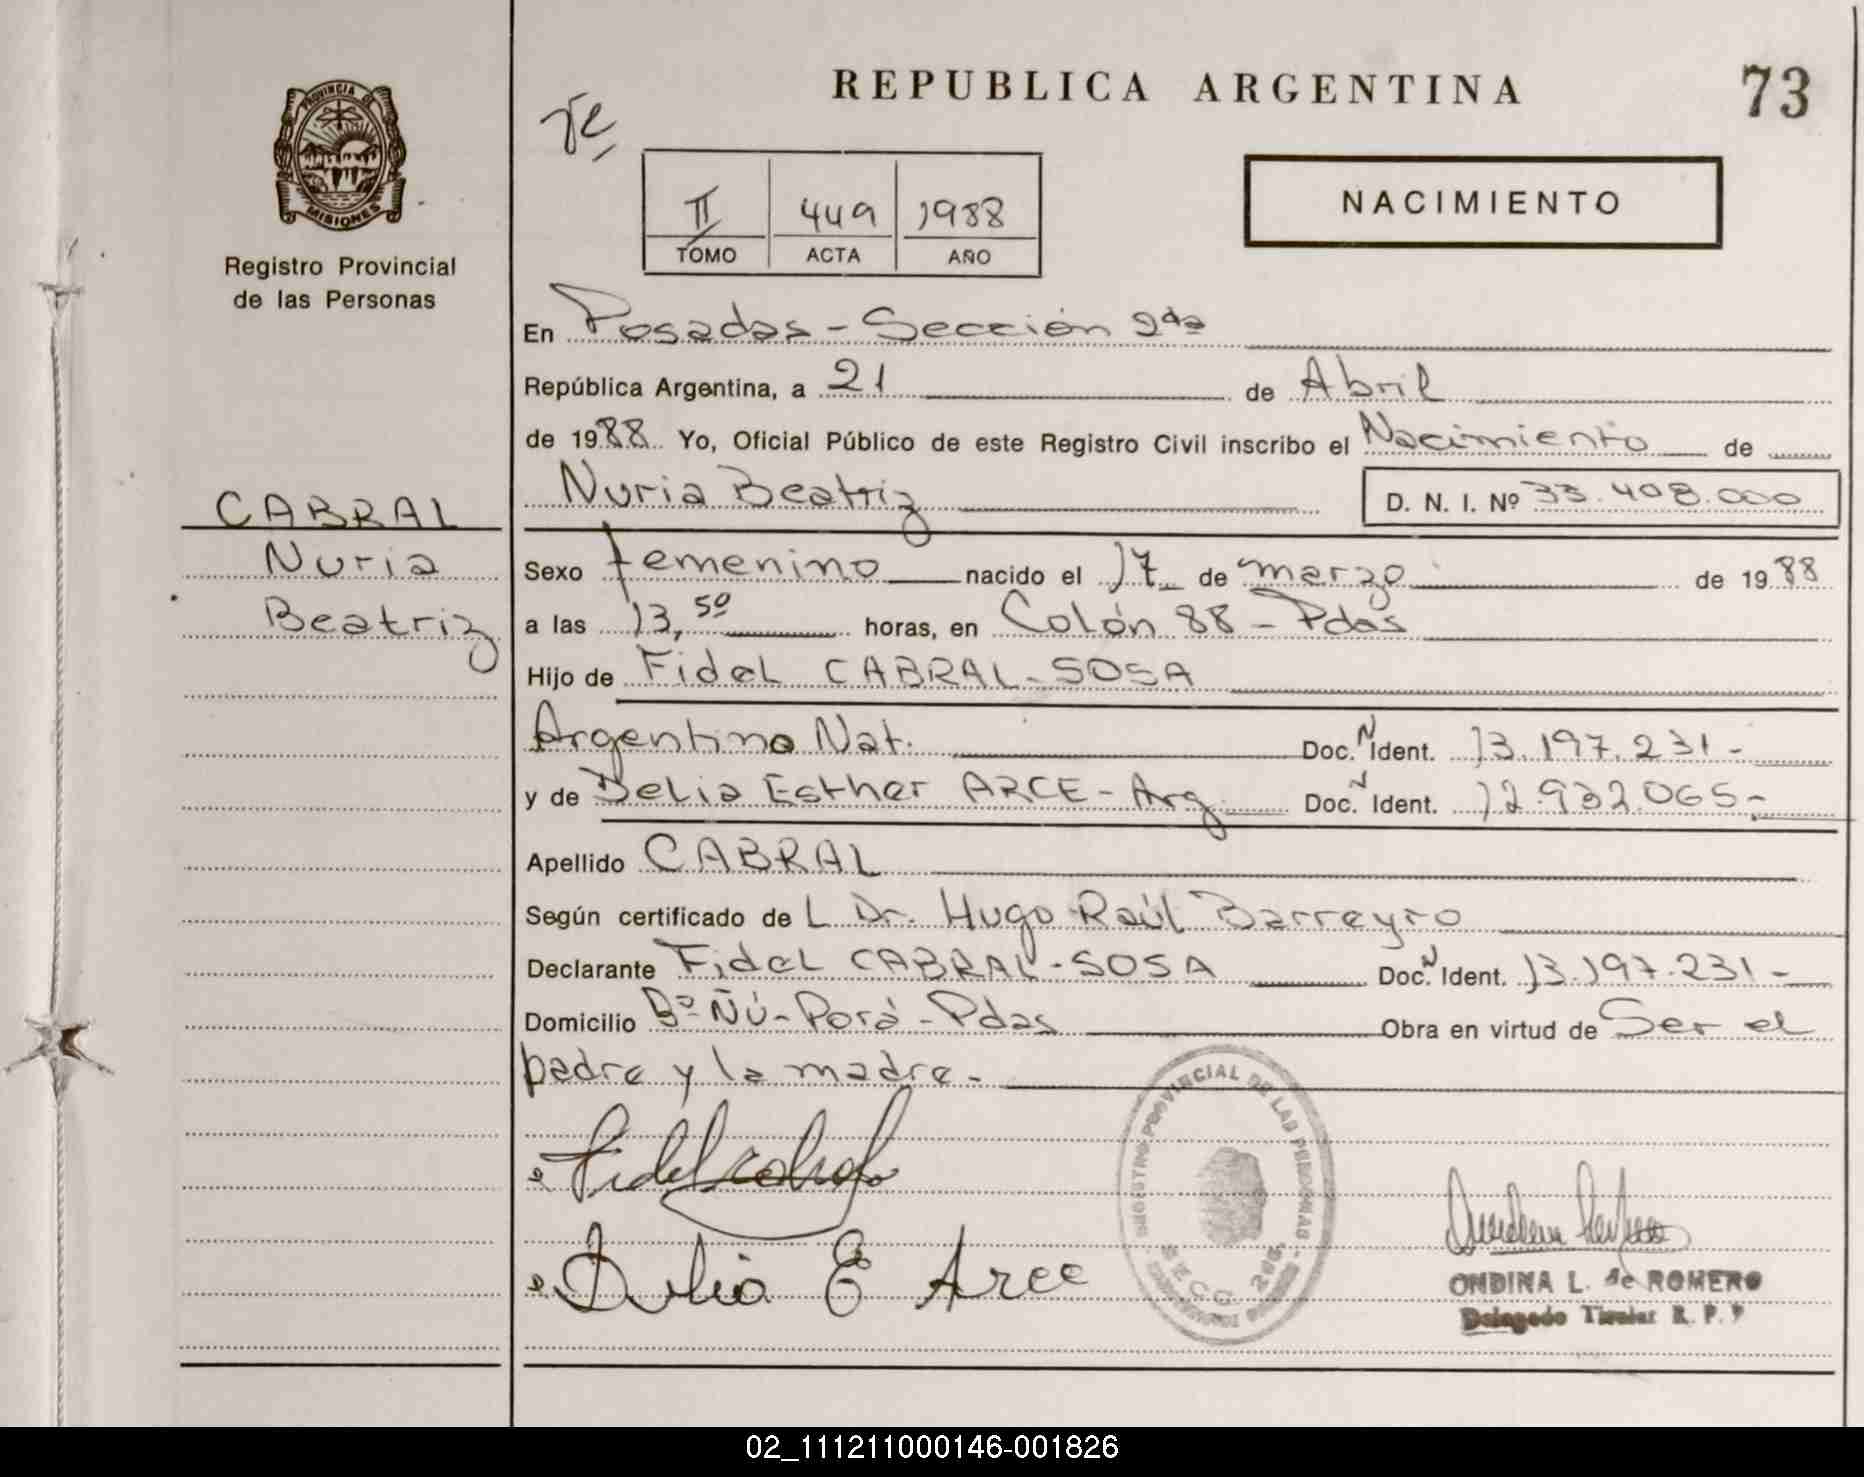 PROVINCIA DE
MISIONES
Registro Provincial
de las Personas
CABRAL
Nuria
Beatriz
REPUBLICA ARGENTINA
73
II 449 1988
TOMO ACTA AÑO
NACIMIENTO
En Posadas - Sección 2da
República Argentina, a 21 de Abril
de 1988 Yo, Oficial Público de este Registro Civil inscribo el Nacimiento de
Nuria Beatriz D. N. I. Nº 33.408.000
Sexo femenino nacido el 17 de marzo de 1988
a las 13,50 horas, en Colón 88 - Pdas
Hijo de Fidel CABRAL-SOSA
Argentino Nat. Doc. N Ident. 13.197.231-
y de Delia Esther ARCE - Arg. Doc. N Ident. 12.932.065-
Apellido CABRAL
Según certificado de L Dr. Hugo Raúl Barreyro
Declarante Fidel CABRAL-SOSA Doc. N Ident. 13.197.231-
Domicilio Bº Ñú-Porá-Pdas Obra en virtud de Ser el
padre y la madre.-
REGISTRO PROVINCIAL DE LAS PERSONAS
Delia E Arce
ONDINA L. de ROMERO
Delegado Titular R. P. P
02_111211000146-001826